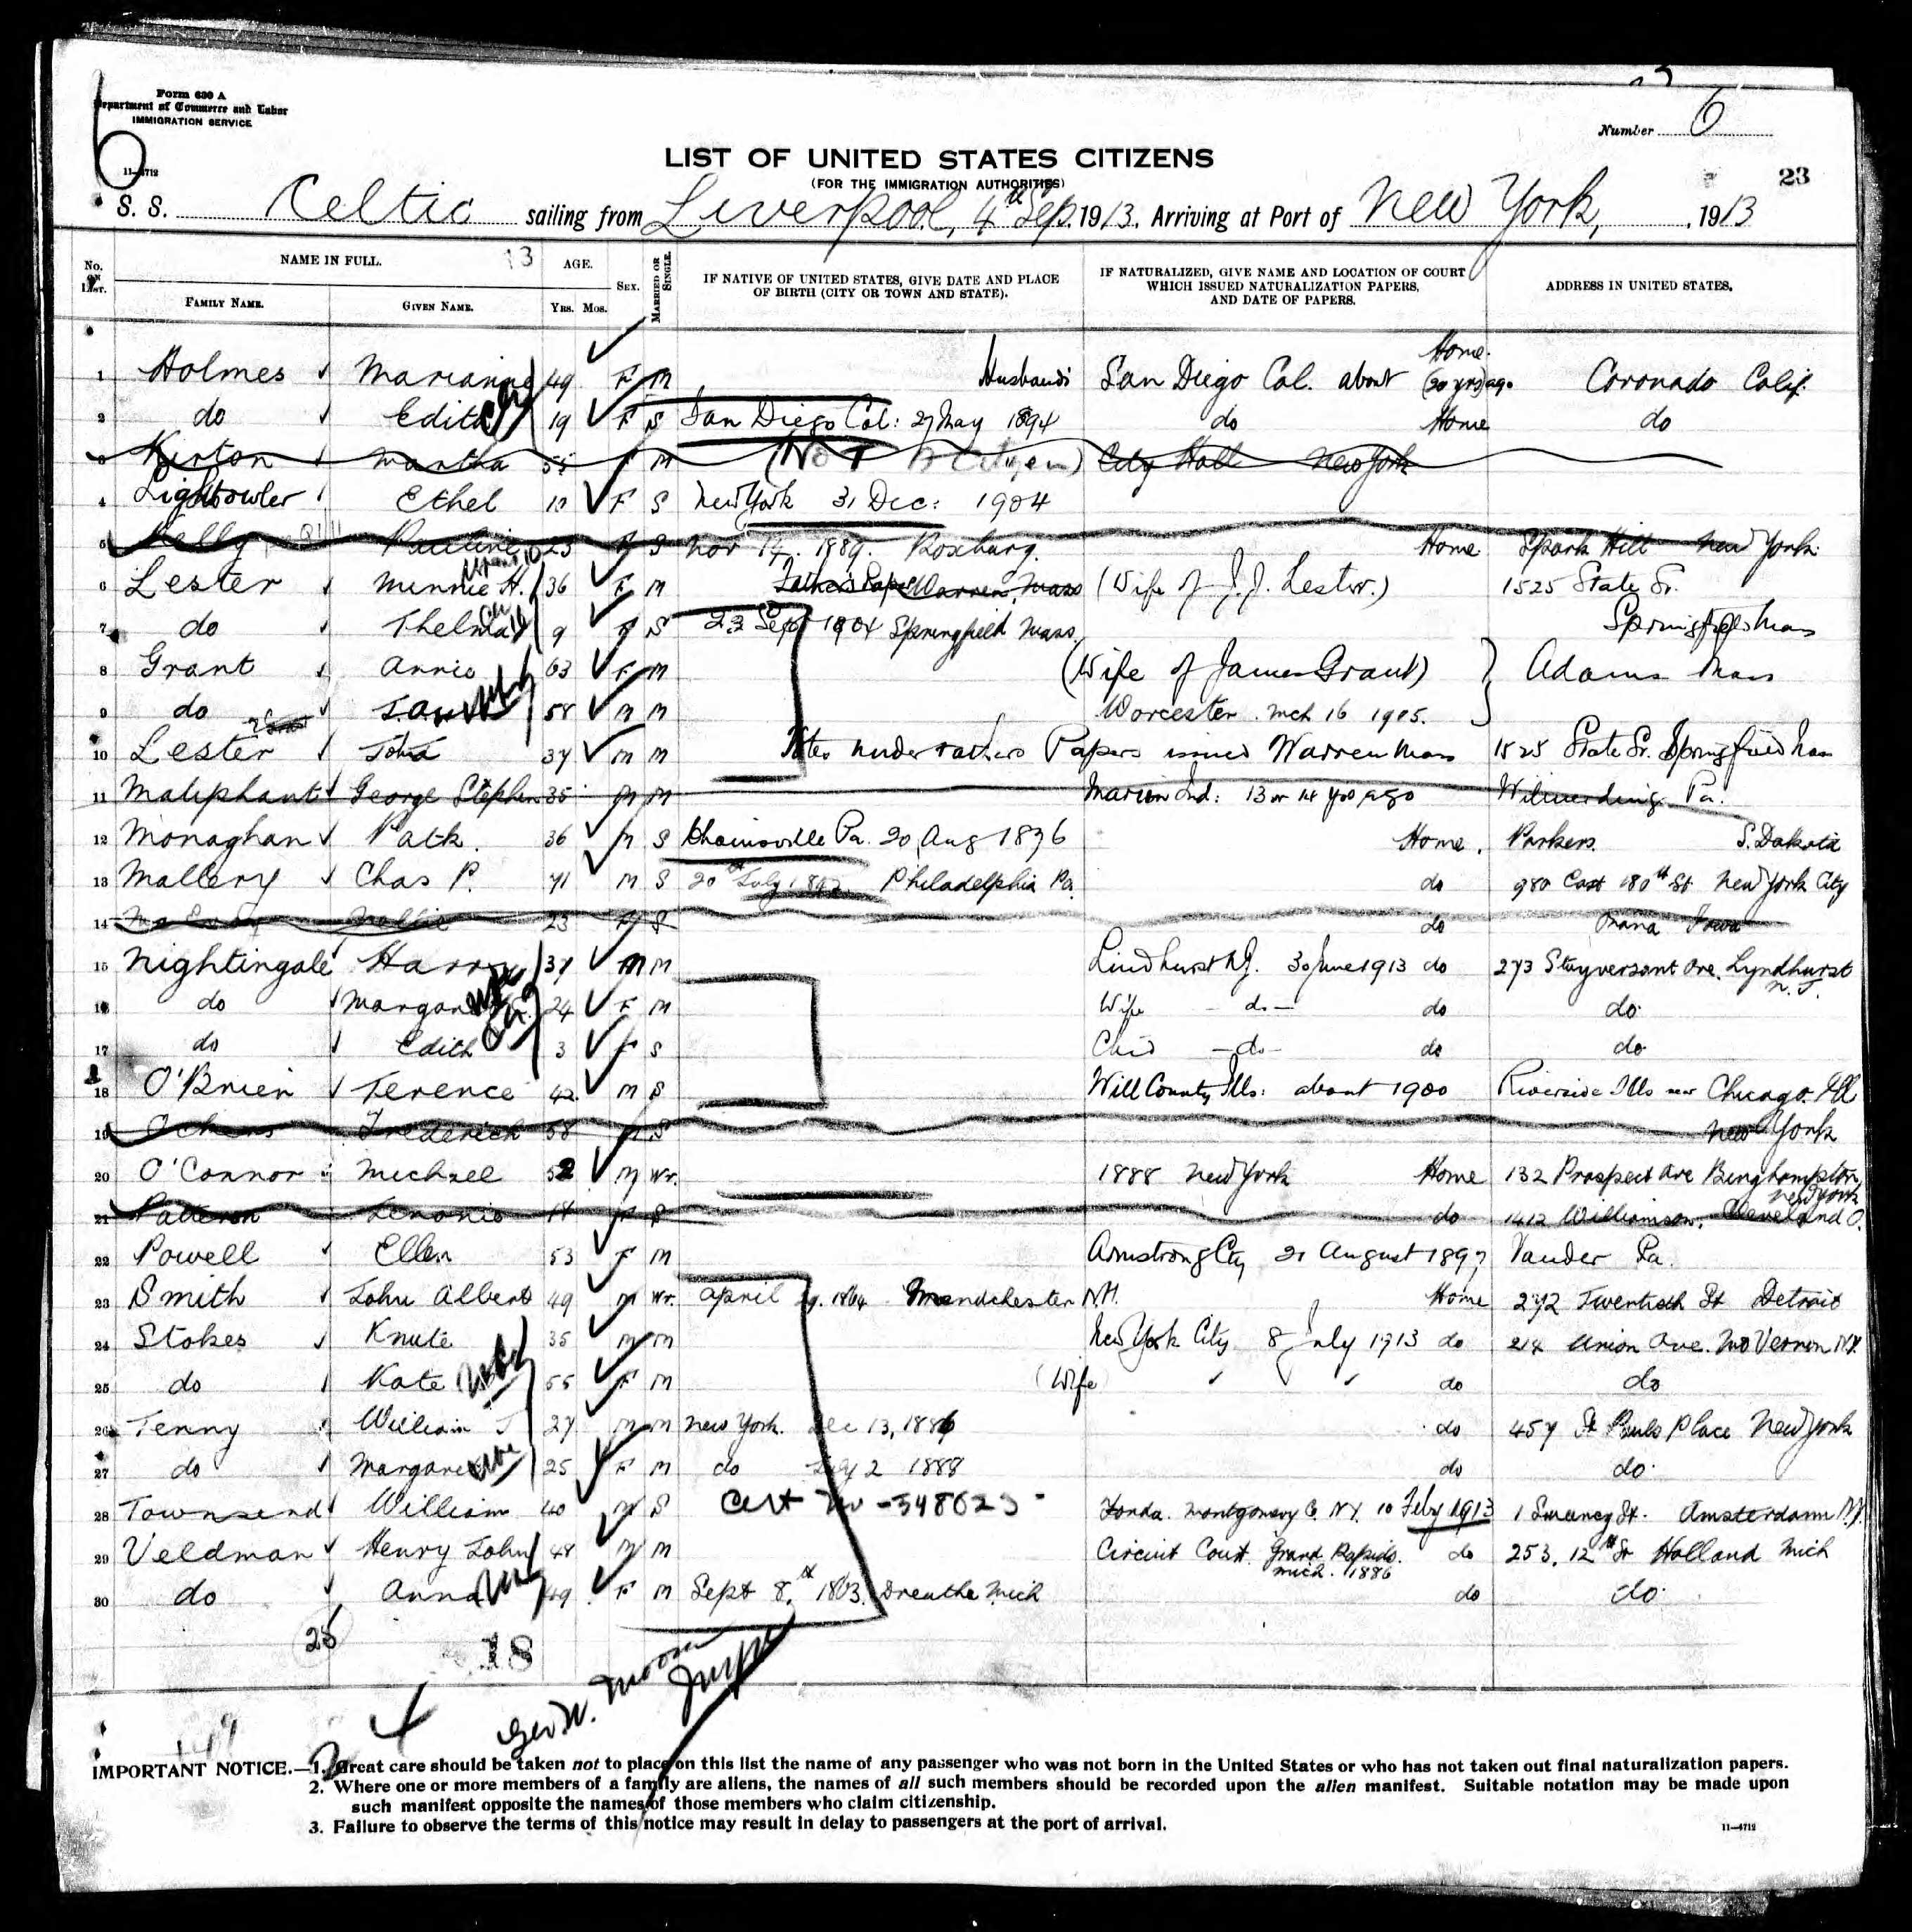 Form 630 A
Department of Commerce and Labor
IMMIGRATION SERVICE
6
11—4712
Number 6
23
LIST OF UNITED STATES CITIZENS
(FOR THE IMMIGRATION AUTHORITIES)
S. S. Celtic sailing from Liverpool, 4th Sep. 1913. Arriving at Port of New York, 1913
No. ON LIST. NAME IN FULL. 13 AGE. SEX. MARRIED OR SINGLE. IF NATIVE OF UNITED STATES, GIVE DATE AND PLACE OF BIRTH (CITY OR TOWN AND STATE). IF NATURALIZED, GIVE NAME AND LOCATION OF COURT WHICH ISSUED NATURALIZATION PAPERS, AND DATE OF PAPERS. ADDRESS IN UNITED STATES.
FAMILY NAME. GIVEN NAME. YRS. MOS.
1 Holmes Marianne 49 F M Husbands San Diego Cal. about (20 yrs) ago. Home. Coronado Calif.
2 do Edith 19 F S San Diego Cal: 27 May 1894 do Home do
3 Kirton Martha 55 F M (Not a Citizen) City Hall New York
4 Lightowler Ethel 10 F S New York 31 Dec: 1904
5 Kelly Pauline 23 F S Nov 14. 1889. Roxburg. Home Spark Hill New York.
6 Lester Minnie H. 36 F M Fathers Paper Warren, Mass (Wife of J. J. Lester.) 1525 State St.
7 do Thelma 9 F S 22 Sept 1904 Springfield Mass. Springfield Mass
8 Grant Annie 63 F M (Wife of James Grant) Adams Mass
9 do 58 M M Worcester. Mch 16 1905.
10 Lester John 37 M M Votes under Fathers Papers issued Warren Mass 1525 State St. Springfield Mass
11 Maliphant George Stephen 35 M M Marion Ind: 13 or 14 yrs ago Wilmerding Pa.
12 Monaghan Patk. 36 M S Pa. 20 Aug 1876 Home. Parkers. S. Dakota
13 Mallery Chas P. 71 M S 20th July 1842 Philadelphia Pa. do 980 East 180th St New York City
14 Nellie 23 F S do Iowa
15 Nightingale Harry 37 M M Lindhurst N.J. 30 June 1913 do 273 Stuyvesant Ave. Lyndhurst N. J.
16 do Margaret 24 F M Wife — do — do do.
17 do Edith 3 F S Child — do — do do
18 O'Brien Terence 42 M S Will County Ills: about 1900 Riverside Ills near Chicago. Ill
19 Frederick 58 M S New York
20 O'Connor Michael 52 M Wr. 1888 New York Home 132 Prospect Ave Binghampton, New York
21 Patterson 14 F S do 1412 Williamson. Cleveland O.
22 Powell Ellen 53 F M Armstrong Cty 21 August 1897 Vander Pa.
23 Smith John Albert 49 M Wr. April 29. 1864 Mandchester N.H. Home 272 Twentieth St Detroit
24 Stokes Knute 35 M M New York City 8 July 1913 do 214 Union Ave. Mt Vernon N.Y.
25 do Kate 55 F M (Wife do do
26 Tenny William J 27 M M New York. Dec 13, 1886 do 457 St Pauls Place New York
27 do Margaret 25 F M do July 2 1888 do do.
28 Townsend William 40 M S Cert No - 348623 - Fonda. Montgomery Co. N.Y. 10 Feby 1913 1 Sweeney St. Amsterdam N.Y.
29 Veldman Henry John 48 M M Circuit Court. Grand Rapids. Mich. 1886 do 253, 12th St Holland Mich
30 do Anna 49 F M Sept 8th, 1863. Drenthe Mich do do.
25
18
Geo W. Moore
Insp
IMPORTANT NOTICE.—1. Great care should be taken not to place on this list the name of any passenger who was not born in the United States or who has not taken out final naturalization papers.
2. Where one or more members of a family are aliens, the names of all such members should be recorded upon the alien manifest. Suitable notation may be made upon
such manifest opposite the names of those members who claim citizenship.
3. Failure to observe the terms of this notice may result in delay to passengers at the port of arrival.
11—4712